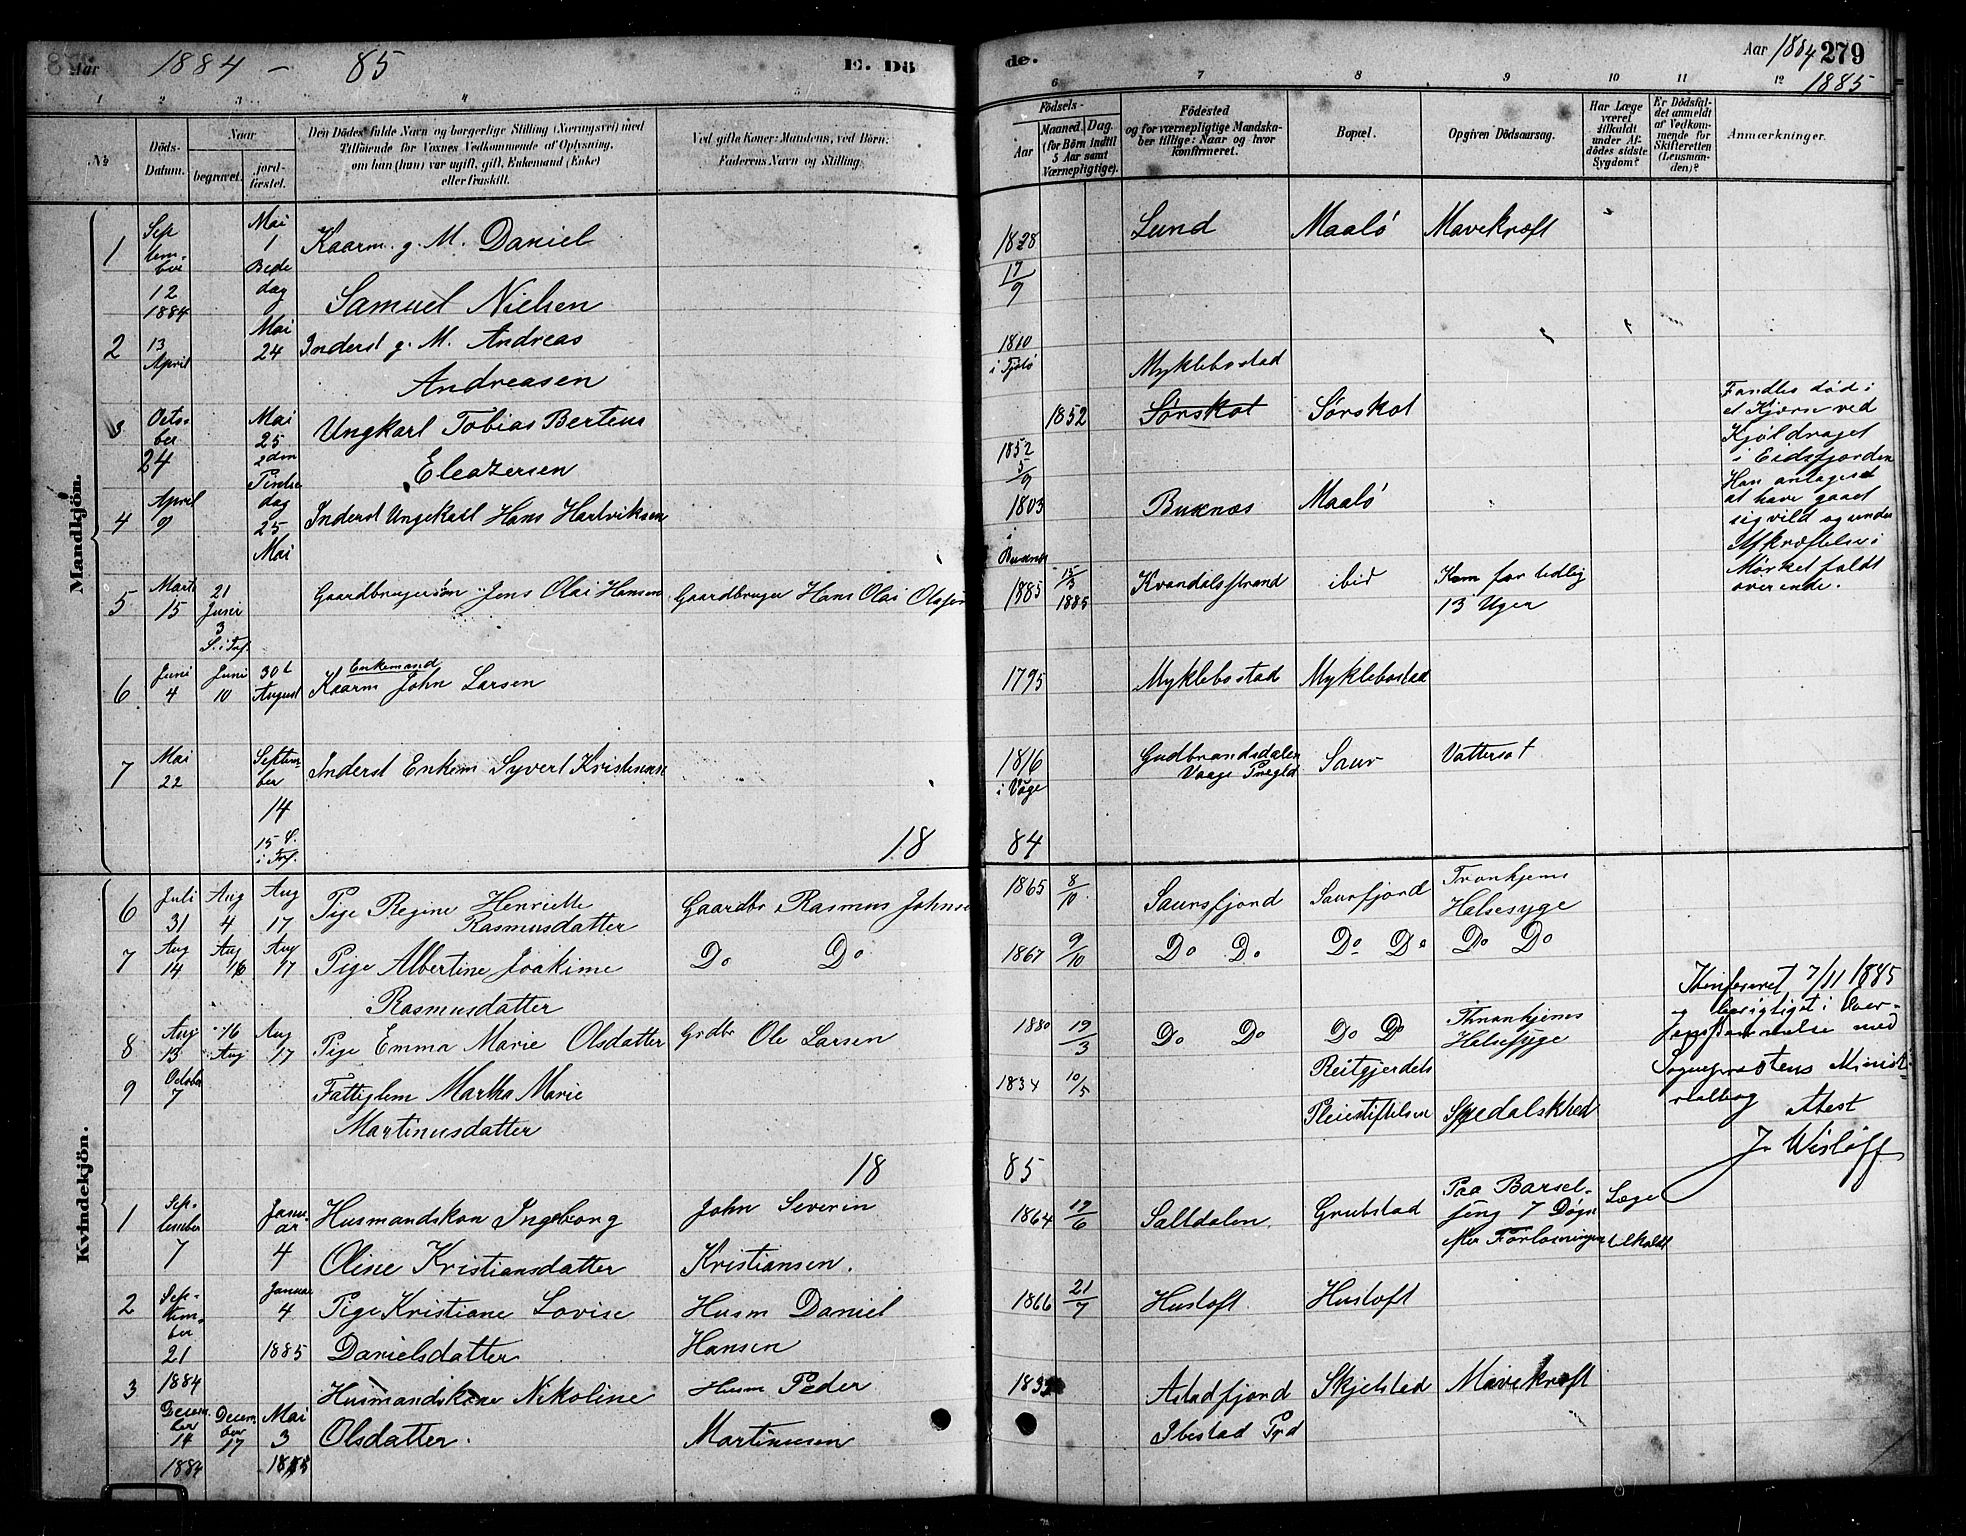 Aar 1884 - 85
E. Dö
de.
Aar 1884 279
1885
1 2 3 4 5
6 7 8 9 10 11 12
No
Döds-
Datum.
Naar
begravet.
jord-
fæstet.
Den Dödes fulde Navn og borgerlige Stilling (Næringsvei) med
Tilföiende for Voxnes Vedkommende af Oplysning,
om han (hun) var ugift, gift, Enkemand (Enke)
eller fraskilt.
Ved gifte Koner: Mandens, ved Börn:
Faderens Navn og Stilling.
Födsels-
Aar
Maaned. Dag.
(for Börn indtil
5 Aar samt
Værnepligtige).
Födested
og for værnepligtige Mandska-
ber tillige: Naar og hvor
konfirmeret.
Bopæl.
Opgiven Dödsaarsag.
Har Læge
været
tilkaldt
under Af-
dödes sidste
Sygdom?
Er Dödsfal-
det anmeldt
af Vedkom-
mende for
Skifteretten
(Lensman-
den)?
Anmærkninger.
Mandkjön.
1 September 12 1884 Mai 1 Bededag Kaarm. g. M. Daniel
Samuel Nielsen
1828 17/9 Lund Maalö Mavekræft
2 13 April Mai 24 Inderst g. M. Andreas
Andreasen
1810 Myklebostad
3 October 24 Mai 25 2den Pintsedag Ungkarl Tobias Bertens
Eleazersen
1852 Sørskot Sørskot
1852 5/9
Fandtes död i
et Kjærn ved
Kjöldraget
i Eidsfjorden
Han antages
at have gaaet
sig vild og under
Afkræftelse i
Mørket faldt
overende.
4 April 9 25 Mai Inderst Ungekarl Hans Hartviksen
1803 i Buxnæs Buxnæs Maalö
5 Marts 15 21 Juni 3 S. i Tref. Gaardbrugersön Jens Olai Hansen Gaardbruger Hans Olai Olsen
1885 15/3 1885 Kvandalsstrand ibid Kom for tidlig
13 Uger
6 Juni 4 Juni 10 30t August Enkemand
Kaarm John Larsen
1795 Myklebostad Myklebostad
7 Mai 22 September 14 Inderst Enkem Syvert Kristensen
15 S. i Tref.
1816 i Våge Gudbrandsdalen
Vaage Pregld Saur Vattersot
18 84
Kvindekjön.
6 Juli 31 Aug 4 Aug 17 Pige Regine Henriette
Rasmusdatter Gaardbr Rasmus Johns
1865 8/10 Saursfjord Saurfjord Tronhjems
Halsesyge
7 Aug 14 Aug 16 Aug 17 Pige Albertine Joakime
Rasmusdatter Do Do
1867 9/10 Do Do Do Do Do Do
8 Aug 13 16 Aug Aug 17 Pige Emma Marie Olsdatter Grdbr Ole Larsen
1880 19/3 Do Do Do Do Thronhjems
Halsesyge
9 October 7 Fattiglem Martha Marie
Martinusdatter
1834 10/5 Reitgjerdets
Pleiestiftelsen Spedalskhed
Konfereret 7/11 1885
og berigtiget i Over-
ensstemmelse med
Sogneprestens Minist-
rialbog
Attest
J. Wisløff
18 85
1 September 7 Januar 4 Husmandskon Ingeborg
Oline Kristiansdatter John Severin
Kristiansen.
1864 19/6 Saltdalen Grubstad Paa Barsel-
seng 7 Døgn
efter Forløsningen Læge
tilkaldt
2 September 21 1884 Januar 4 1885 Pige Kristiane Lovise
Danielsdatter Husm Daniel
Hansen
1866 21/7 Husloft Husloft
3 December 14 1884 Decem ber 17 Mai 3 1885 Husmandskone Nikoline
Olsdatter. Husm Peder
Martinusen
Astadfjord
Ibestad Prd Skjelstad Mavekræft